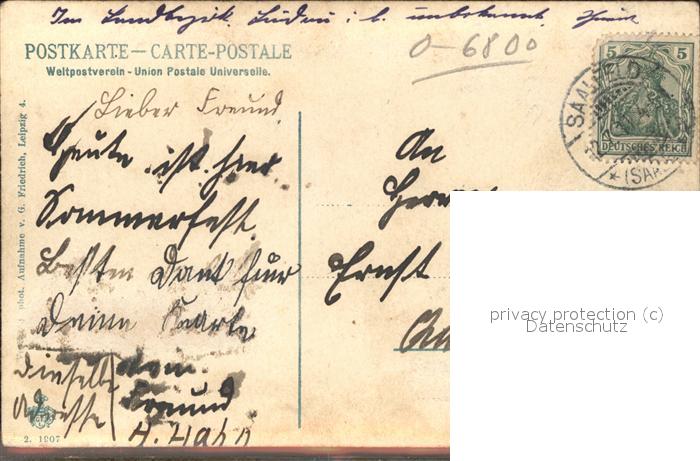 Im Landbezirk Lindau i. b. unbekannt.
0-6800
POSTKARTE — CARTE-POSTALE
Weltpostverein - Union Postale Universelle.
Lieber Freund
Heute ist hier
Sommerfest
Besten Dank für
deine Karte
dieselbe
Adresse
dein
Freund
An
Herrn
Ernst
phot. Aufnahme v. G. Friedrich, Leipzig 4.
2. 1907
5 5
DEUTSCHES REICH
SAALFELD
* (SAA
privacy protection (c)
Datenschutz